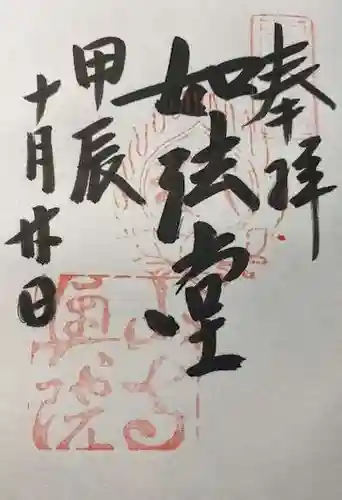 奉拝
如法堂
甲辰
十月廿日